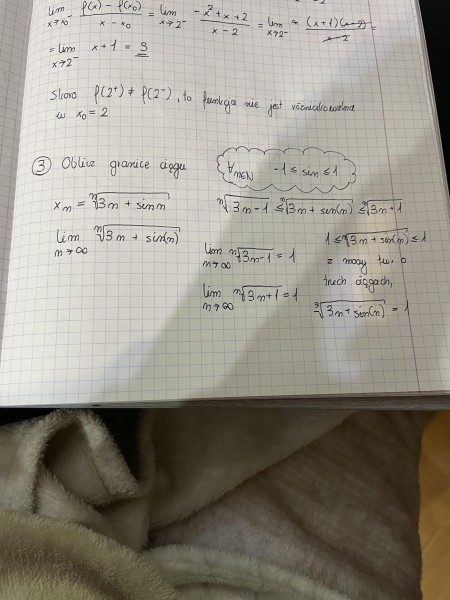 lim x→x₀⁻ f(x) - f(x₀) / x - x₀ = lim x→2⁻ -x² + x + 2 / x - 2 = lim x→2⁻ - (x+1)(x-2) / x-2 =
= lim x→2⁻ x + 1 = 3
Skoro f(2⁺) ≠ f(2⁻), to funkcja nie jest różniczkowalna
w x₀ = 2
③ Oblicz granice ciągu
∀n∈N -1 ≤ sin ≤ 1
xn = ⁿ√3n + sin n
ⁿ√3n - 1 ≤ ⁿ√3n + sin(n) ≤ ⁿ√3n + 1
lim n→∞ ⁿ√3n + sin(n)
lim n→∞ ⁿ√3n-1 = 1
lim n→∞ ⁿ√3n+1 = 1
1 ≤ ⁿ√3n + sin(n) ≤ 1
z mocy tw. o
trzech ciągach,
ⁿ√3n + sin(n) = 1